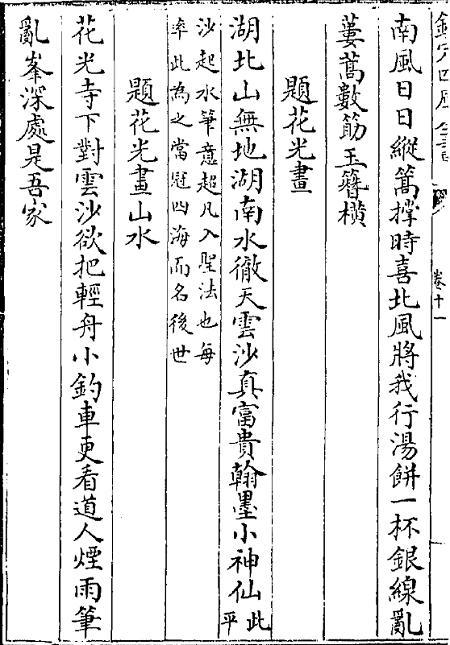 欽定四庫全書
卷十一
南風日日縱篙撑時喜北風將我行湯餅一杯銀線亂
蔞蒿數筯玉簪横
題花光畫
湖北山無地湖南水徹天雲沙真富貴翰墨小神仙此平
沙起水筆意超凡入聖法也每
率此為之當冠四海而名後世
題花光畫山水
花光寺下對雲沙欲把輕舟小釣車更看道人煙雨筆
亂峯深處是吾家